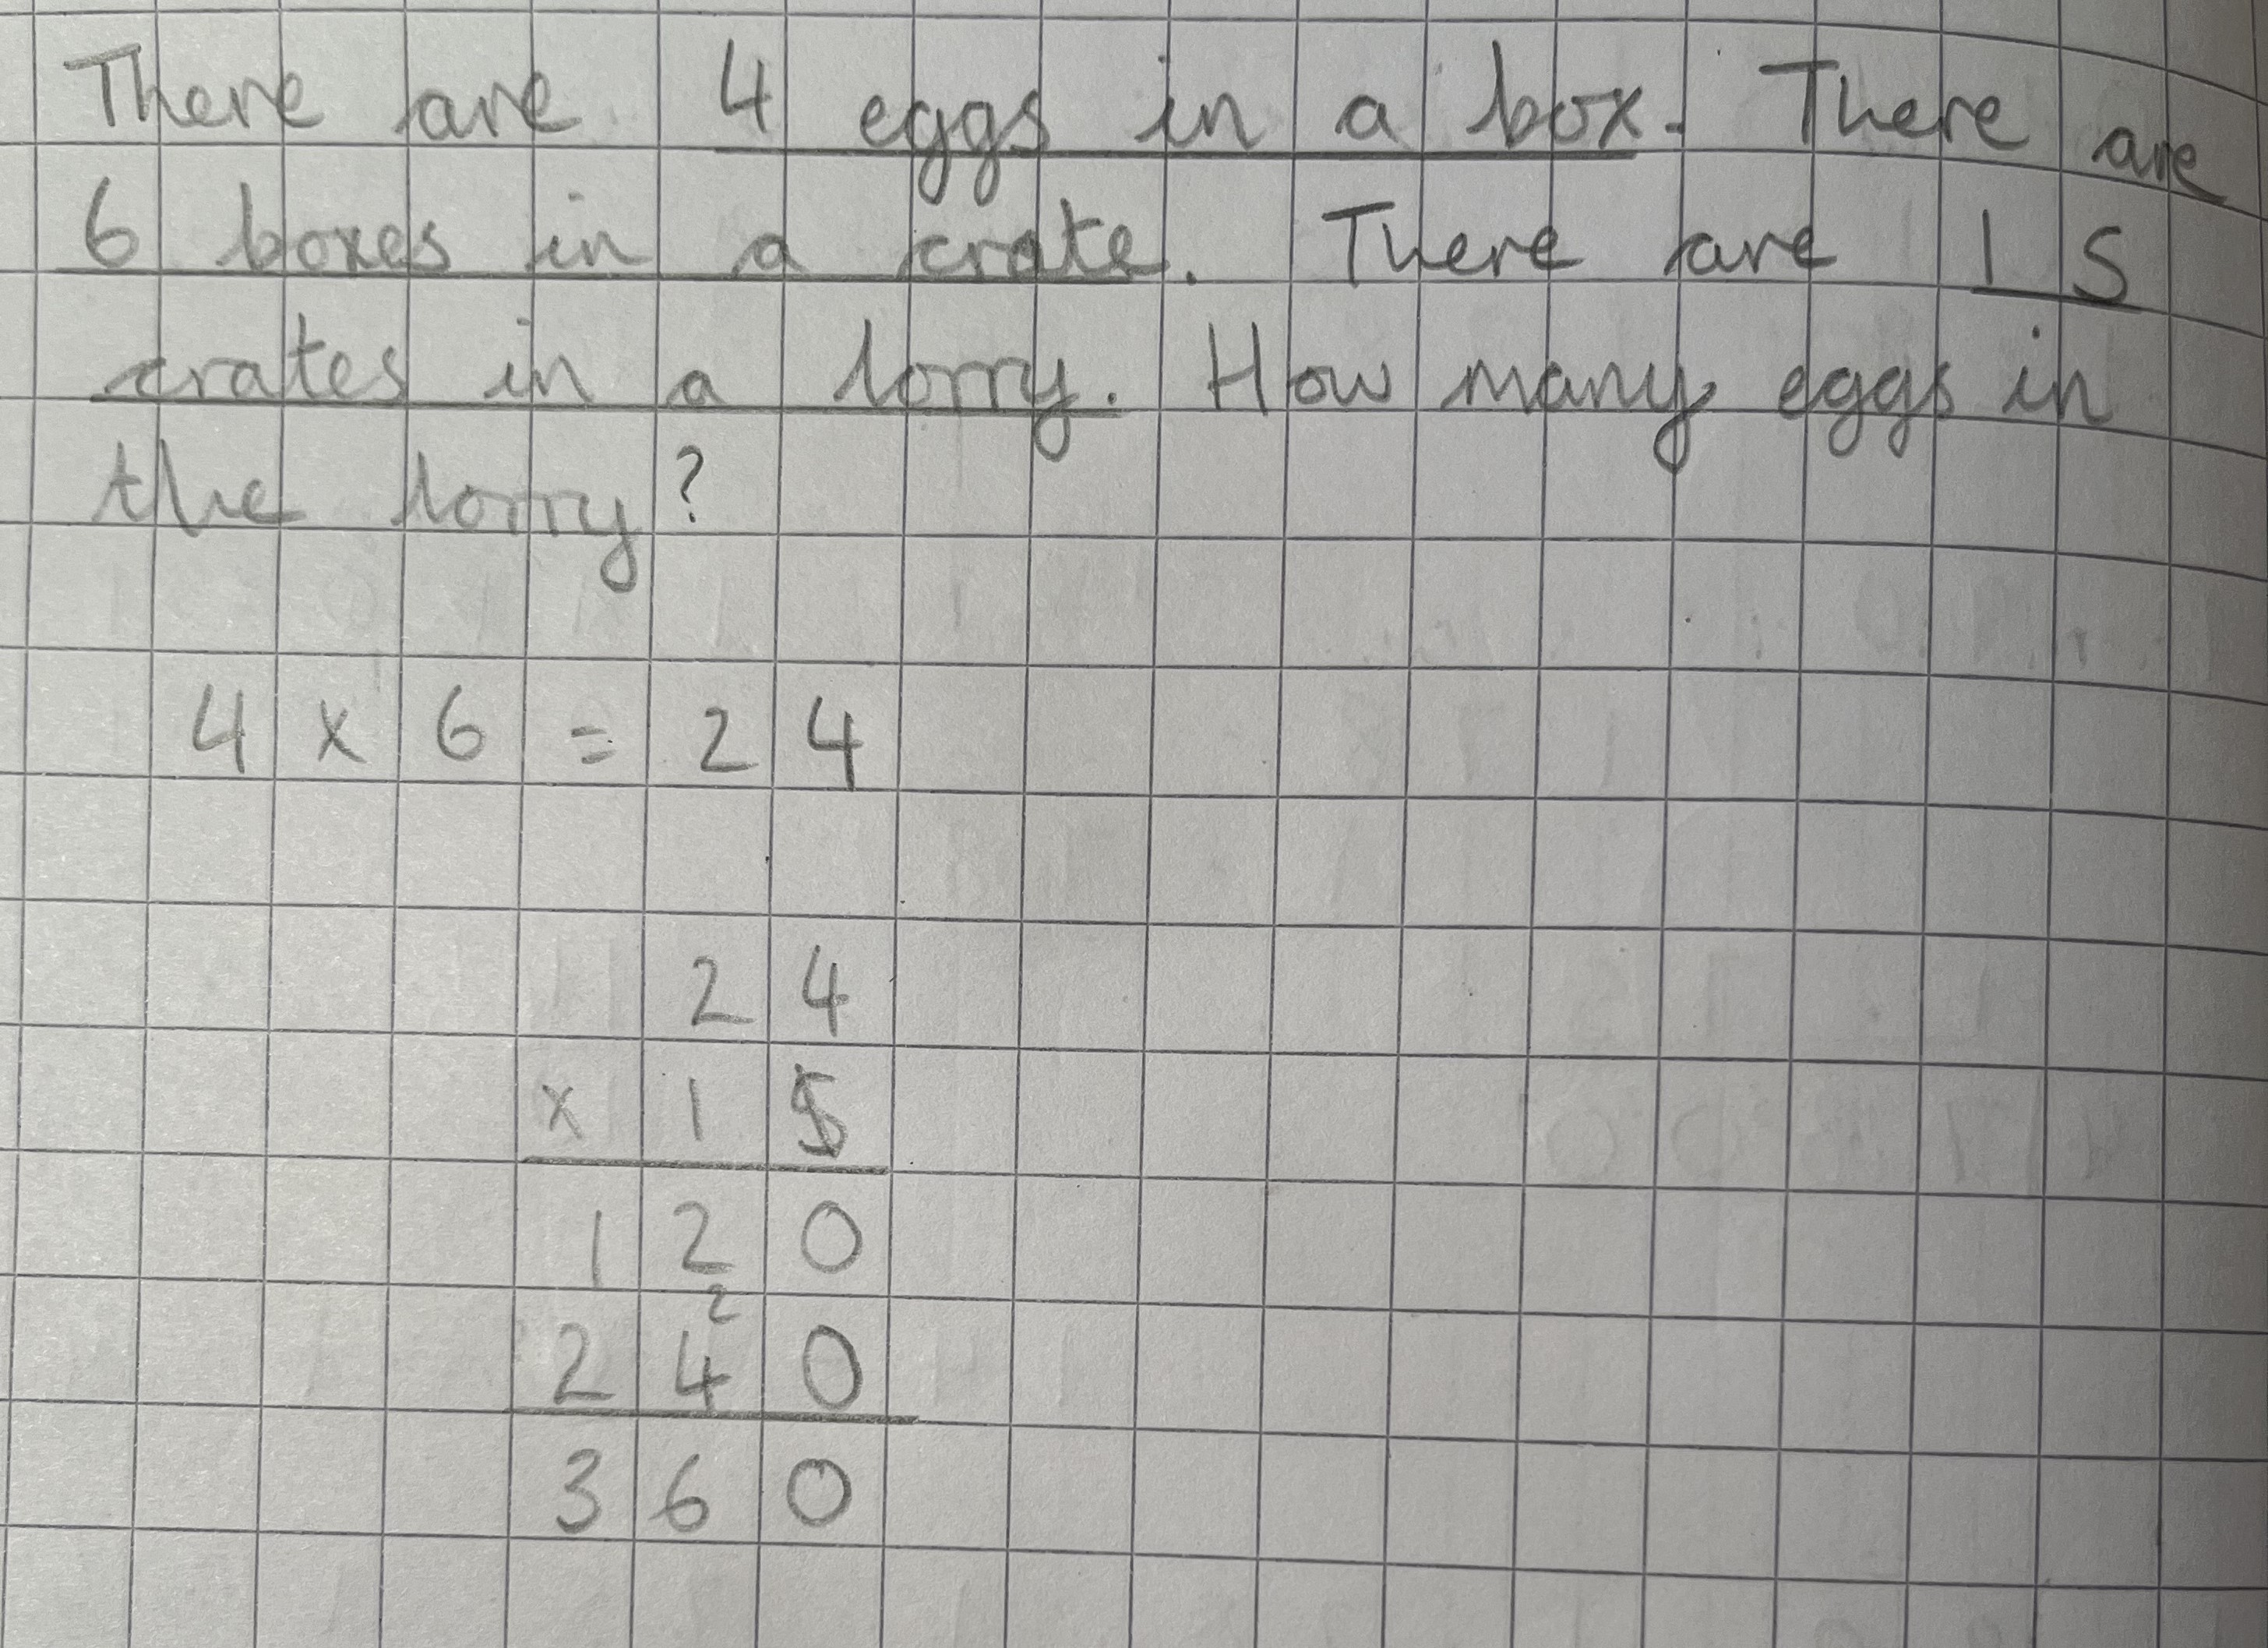 There are 4 eggs in a box. There are
6 boxes in a crate. There are 15
crates in a lorry. How many eggs in
the lorry?
4 x 6 = 24
24
x 15
120
2
240
360